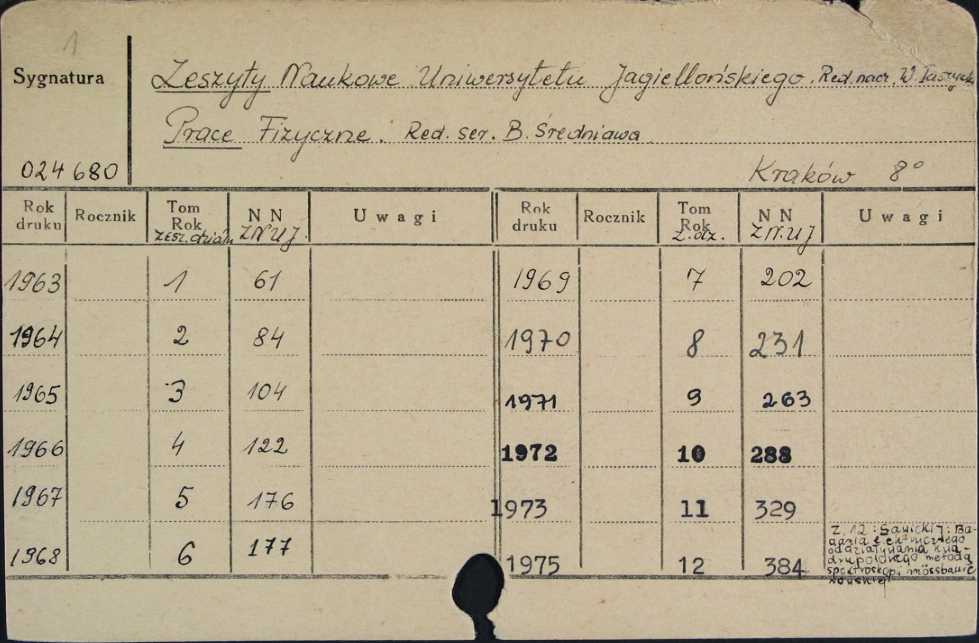 1
Sygnatura
Zeszyty Naukowe Uniwersytetu Jagiellońskiego. Red. nacz. W. Taszycki
Prace Fizyczne. Red. ser. B. Średniawa
024680
Kraków 8°
Rok druku Rocznik Tom Rok zesz. działu NN ZNUJ. Uwagi Rok druku Rocznik Tom Rok Z. dz. NN ZN.UJ Uwagi
1963 1 61 1969 7 202
1964 2 84 1970 8 231
1965 3 104 1971 9 263
1966 4 122 1972 10 288
1967 5 176 1973 11 329
1968 6 177 1975 12 384
Z. 12: Sawicki J: Ba-
dania elektrycznego
oddziaływania kwa-
drupolowego metodą
spektroskopi mössbaue
rowskiej